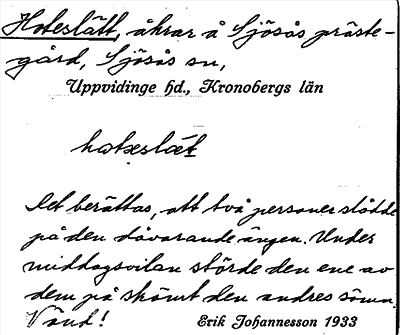 Hoteslätt, åkrar å Sjösås präste-
gård, Sjösås sn,
Uppvidinge hd., Kronobergs län
hatəslæt
Det berättas, att två personer slådde
på den dåvarande ängen. Under
middagsvilan störde den ene av
dem på skämt den andres sömn.
Vänd!
Erik Johannesson 1933